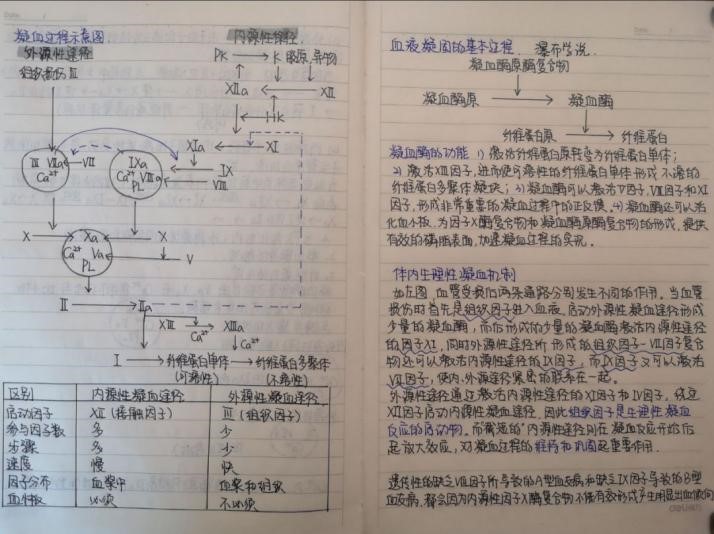 凝血过程示意图
外源性途径
组织损伤 III
内源性途径
PK → K 胶原, 异物
XIIa ← XII
HK
XIa ← XI
III VIIa ← VII
Ca²⁺
IXa
Ca²⁺ VIIIa
PL
IX
VIII
X → Xa ← X
Ca²⁺ Va ← V
PL
II → IIa
XIII → XIIIa
Ca²⁺
Ca²⁺
I → 纤维蛋白单体 → 纤维蛋白多聚体
(可溶性) (不溶性)
区别 内源性凝血途径 外源性凝血途径
启动因子 XII (接触因子) III (组织因子)
参与因子数 多 少
步骤 多 少
速度 慢 快
因子分布 血浆中 血浆和组织
血小板 必须 不必须
血液凝固的基本过程. 瀑布学说.
凝血酶原酶复合物
凝血酶原 → 凝血酶
纤维蛋白原 → 纤维蛋白
凝血酶的功能 1) 激活纤维蛋白原转变为纤维蛋白单体;
2) 激活XIII因子, 进而使可溶性的纤维蛋白单体形成不溶的
纤维蛋白多聚体凝块; 3) 凝血酶可以激活V因子, VIII因子和XI
因子, 形成非常重要的凝血过程中的正反馈. 4) 凝血酶还可以活
化血小板. 为因子X酶复合物和凝血酶原酶复合物的形成, 提供
有效的磷脂表面, 加速凝血过程的实现.
体内生理性凝血机制
如左图, 血管受损后两条通路分别发生不同的作用. 当血管
损伤时首先是组织因子进入血液, 启动外源性凝血途径形成
少量的凝血酶, 而后形成的少量的凝血酶激活内源性途径
的因子XI, 同时外源性途径所形成的组织因子-VII因子复合
物还可以激活内源性途径的IX因子, 而IX因子又可以激活
VII因子, 使内、外源途径紧密的联系在一起.
外源性途径通过激活内源性途径的XI因子和IX因子, 绕过
XII因子启动内源性凝血途径. 因此组织因子是生理性凝血
反应的启动物. 而"截短的"内源性途径则在凝血反应开始后
起放大效应, 对凝血过程的维持和巩固起重要作用.
遗传性的缺乏VIII因子所导致的A型血友病和缺乏IX因子导致的B型
血友病, 都会因为内源性因子X酶复合物不能有效形成产生明显出血倾向
deli